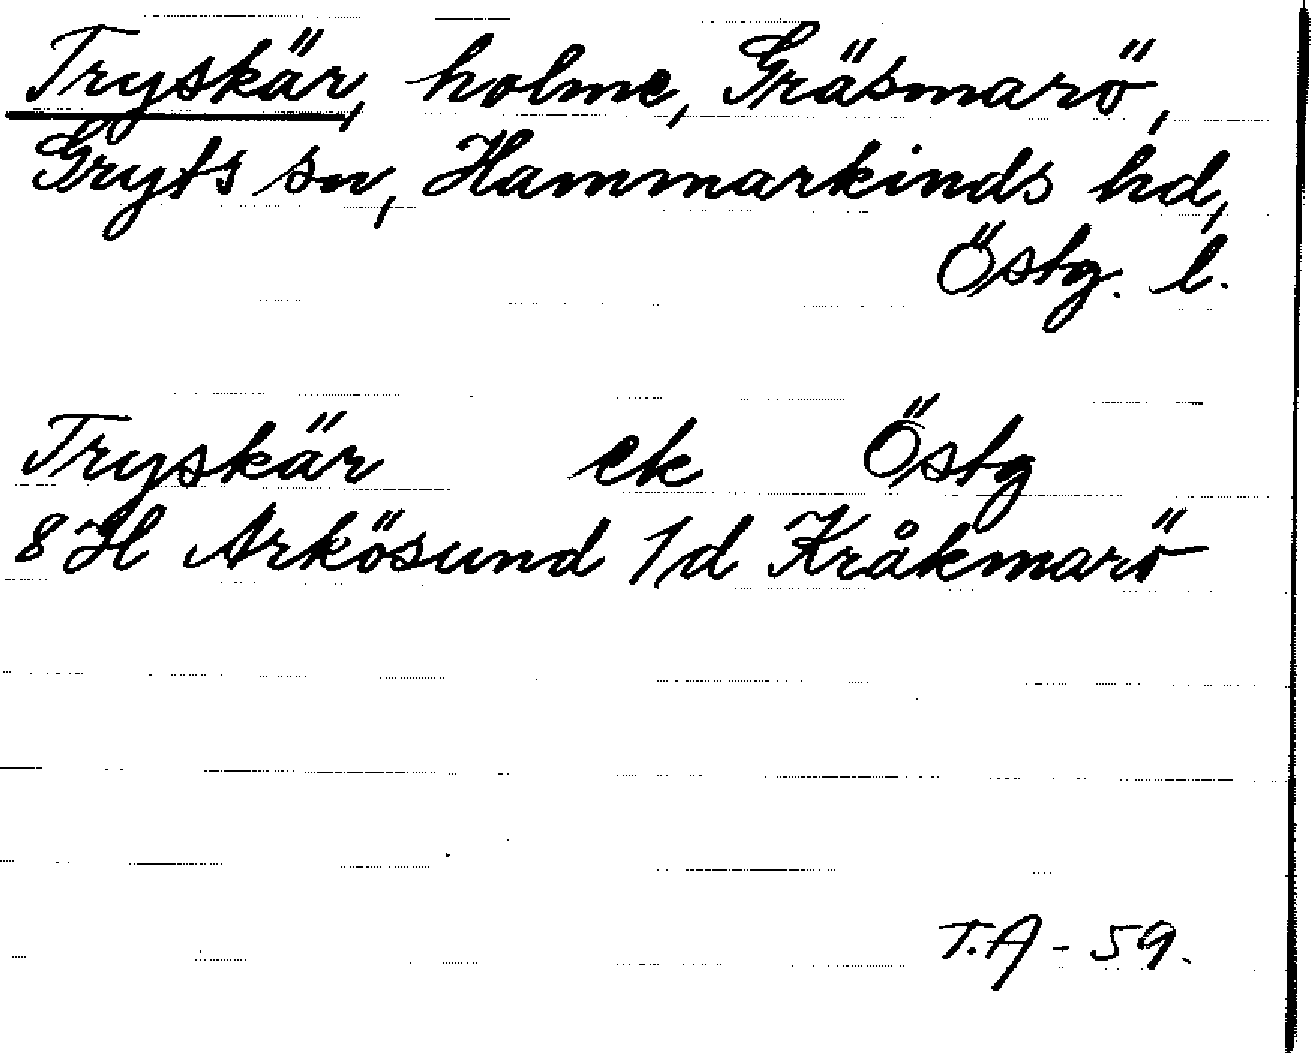 Tryskär, holme, Gräsmarö,
Gryts sn, Hammarkinds hd,
Östg. l.
Tryskär ek Östg
8 H Arkösund 1d Kråkmarö
T.A - 59.